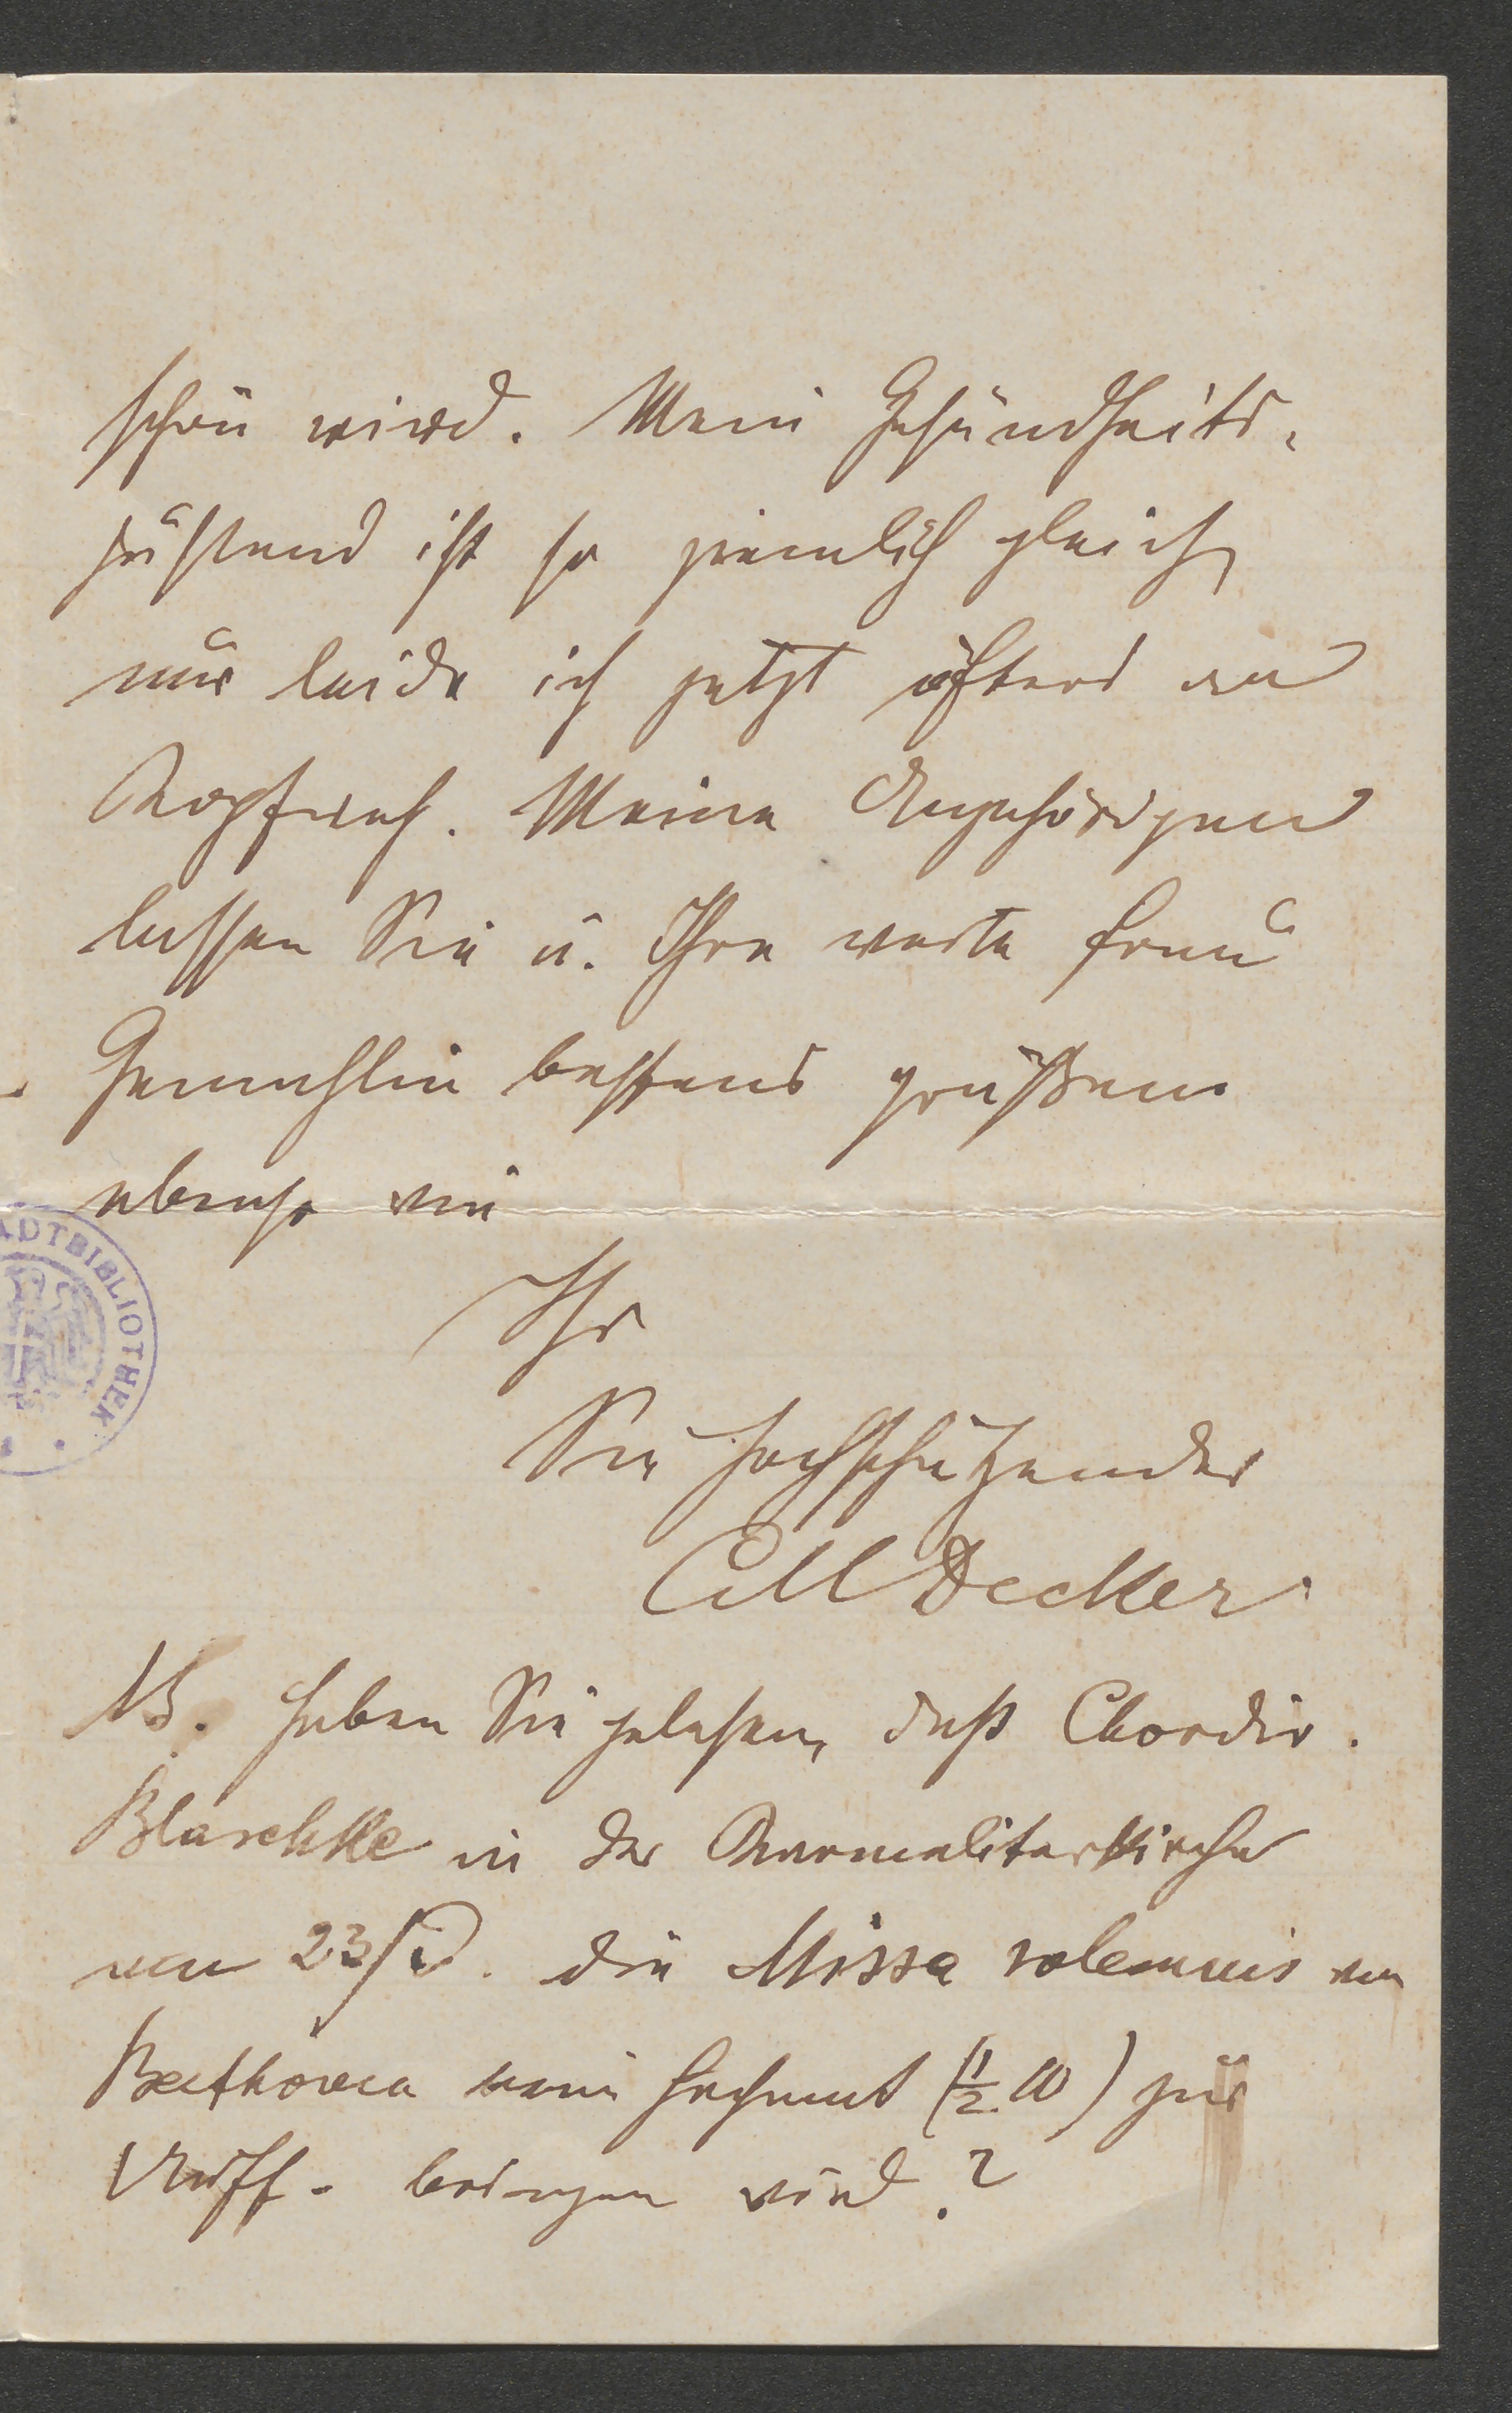 schön wird. Mein Gesundheits-
zustand ist so ziemlich gleich,
nur leide ich jetzt öfters an
Kopfweh. Meine Angehörigen
lassen Sie u. Ihre werte Frau
Gemahlin bestens grüßen
ebenso wie
Ihr
Sie hochschätzender
CMDecker.
NB. Haben Sie gelesen, daß Chordir.
Blaschke in der Karmeliterkirche
am 23/ die Missa solemnis von
Beethoven beim Hochamt (½ 10) zur
Auff. bringen wird?
ADTBIBLIOTHEK